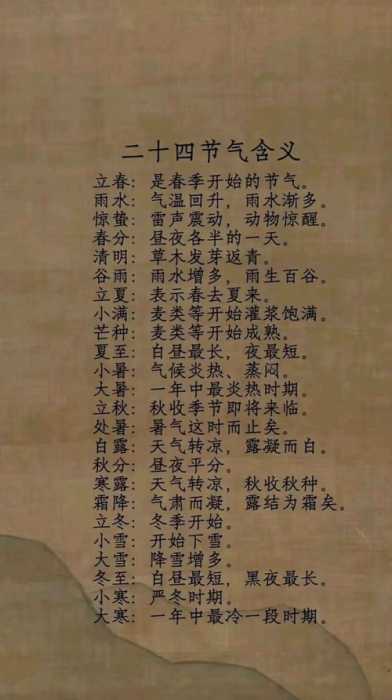 二十四节气含义
立春：是春季开始的节气。
雨水：气温回升，雨水渐多。
惊蛰：雷声震动，动物惊醒。
春分：昼夜各半的一天。
清明：草木发芽返青。
谷雨：雨水增多，雨生百谷。
立夏：表示春去夏来。
小满：麦类等开始灌浆饱满。
芒种：麦类等开始成熟。
夏至：白昼最长，夜最短。
小暑：气候炎热、蒸闷。
大暑：一年中最炎热时期。
立秋：秋收季节即将来临。
处暑：暑气这时而止矣。
白露：天气转凉，露凝而白。
秋分：昼夜平分。
寒露：天气转凉，秋收秋种。
霜降：气肃而凝，露结为霜矣。
立冬：冬季开始。
小雪：开始下雪。
大雪：降雪增多。
冬至：白昼最短，黑夜最长。
小寒：严冬时期。
大寒：一年中最冷一段时期。